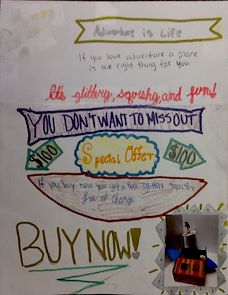 Adventure is Life
If you love adventure a plane
is the right thing for you.
It's glittery, squishy, and fun!
YOU DON'T WANT TO MISS OUT
$100
Special Offer
$100
If you buy now you get a free
free of charge
BUY NOW!